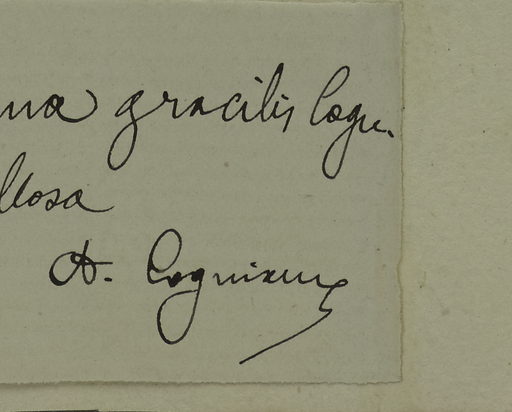 na gracilis Cogn.
llosa
A. Cogniaux